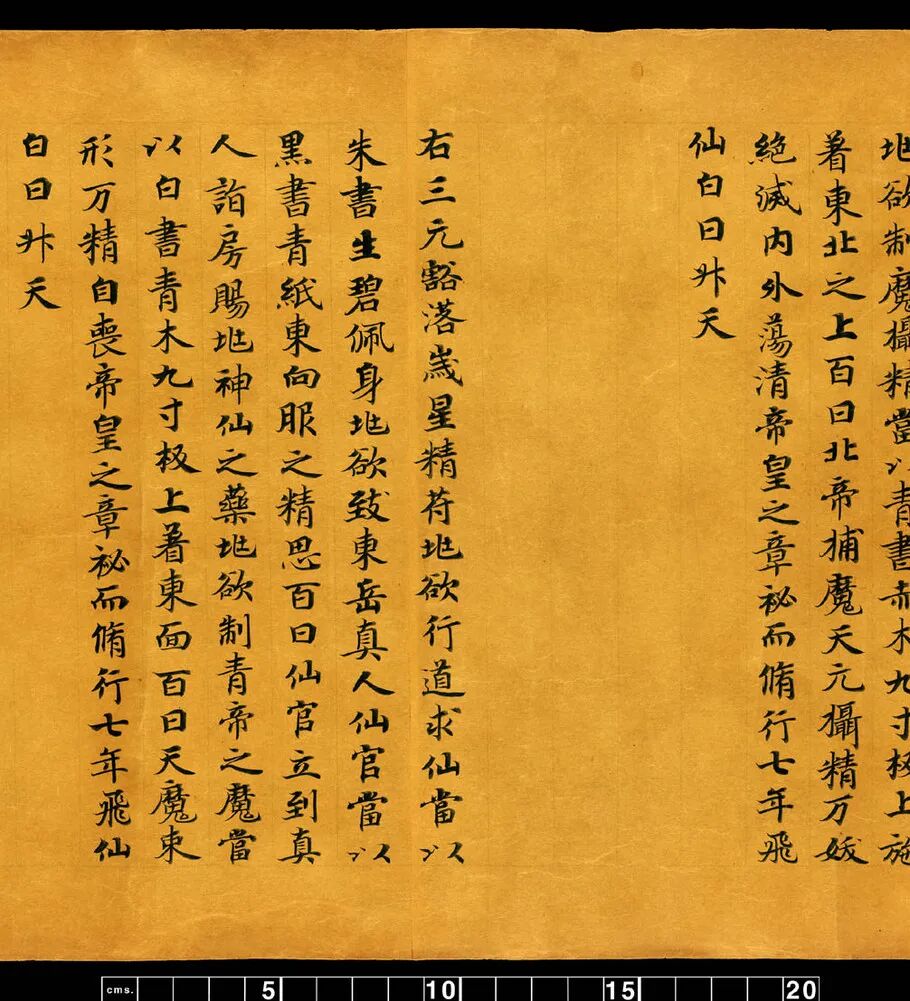 兆欲制魔攝精當以青書赤木九寸板上施
著東北之上百日北帝捕魔天元攝精万妖
絕滅內外蕩清帝皇之章祕而脩行七年飛
仙白日升天
右三元豁落歲星精符兆欲行道求仙當以
朱書生碧佩身兆欲致東岳真人仙官當以
黑書青紙東向服之精思百日仙官立到真
人詣房賜兆神仙之藥兆欲制青帝之魔當
以白書青木九寸板上著東面百日天魔束
形万精自喪帝皇之章祕而脩行七年飛仙
白日升天
cms. 5 10 15 20